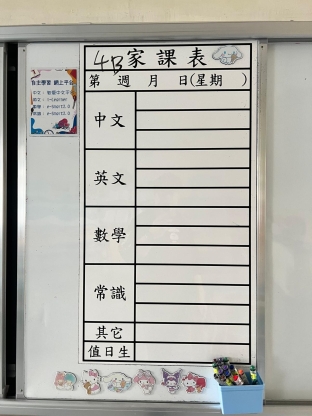 4B家課表
第 週 月 日(星期 )
中文
英文
數學
常識
其它
值日生
自主學習 網上平台